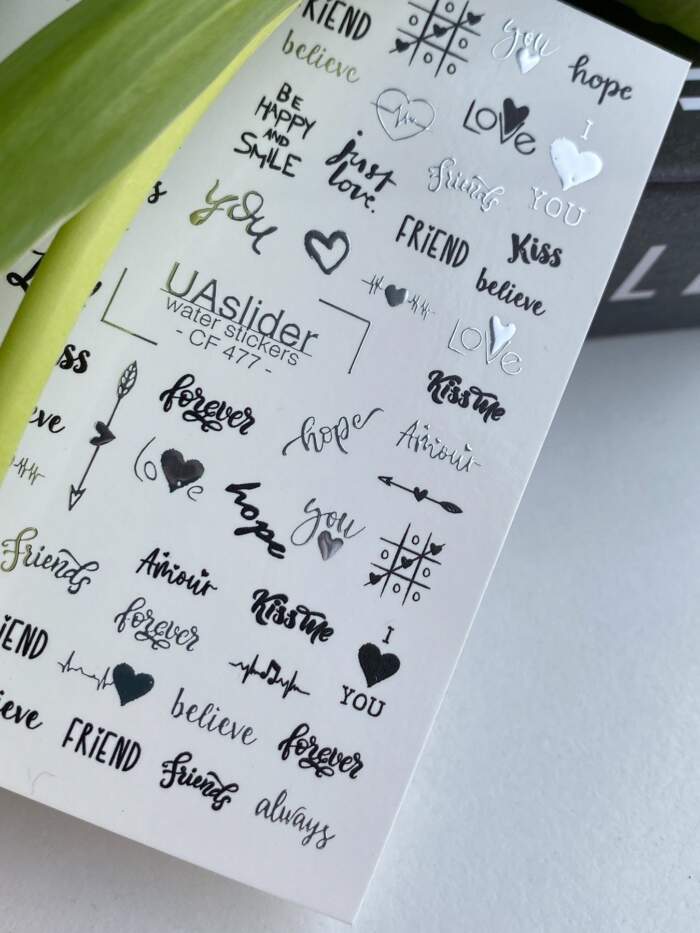 FRIEND
you
hope
believe
BE
HAPPY
AND
SMILE
LOVE
I
YOU
just
love.
friends
you
FRIEND
Kiss
believe
UAslider
water stickers
- CF 477 -
LOVE
Kiss Me
forever
hope
Amour
love
hope
you
friends
Amour
Kiss Me
forever
I
YOU
believe
forever
FRIEND
friends
always